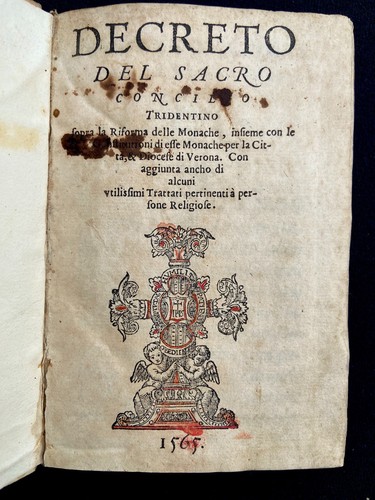 DECRETO
DEL SACRO
CONCILIO
TRIDENTINO
sopra la Riforma delle Monache, insieme con le
di esse Monache per la Cit-
tà, & Diocese di Verona. Con
aggiunta ancho di
alcuni
vtilissimi Trattati pertinenti à per-
sone Religiose.
HVMILITAS
IHS
OBEDIEN
1565.